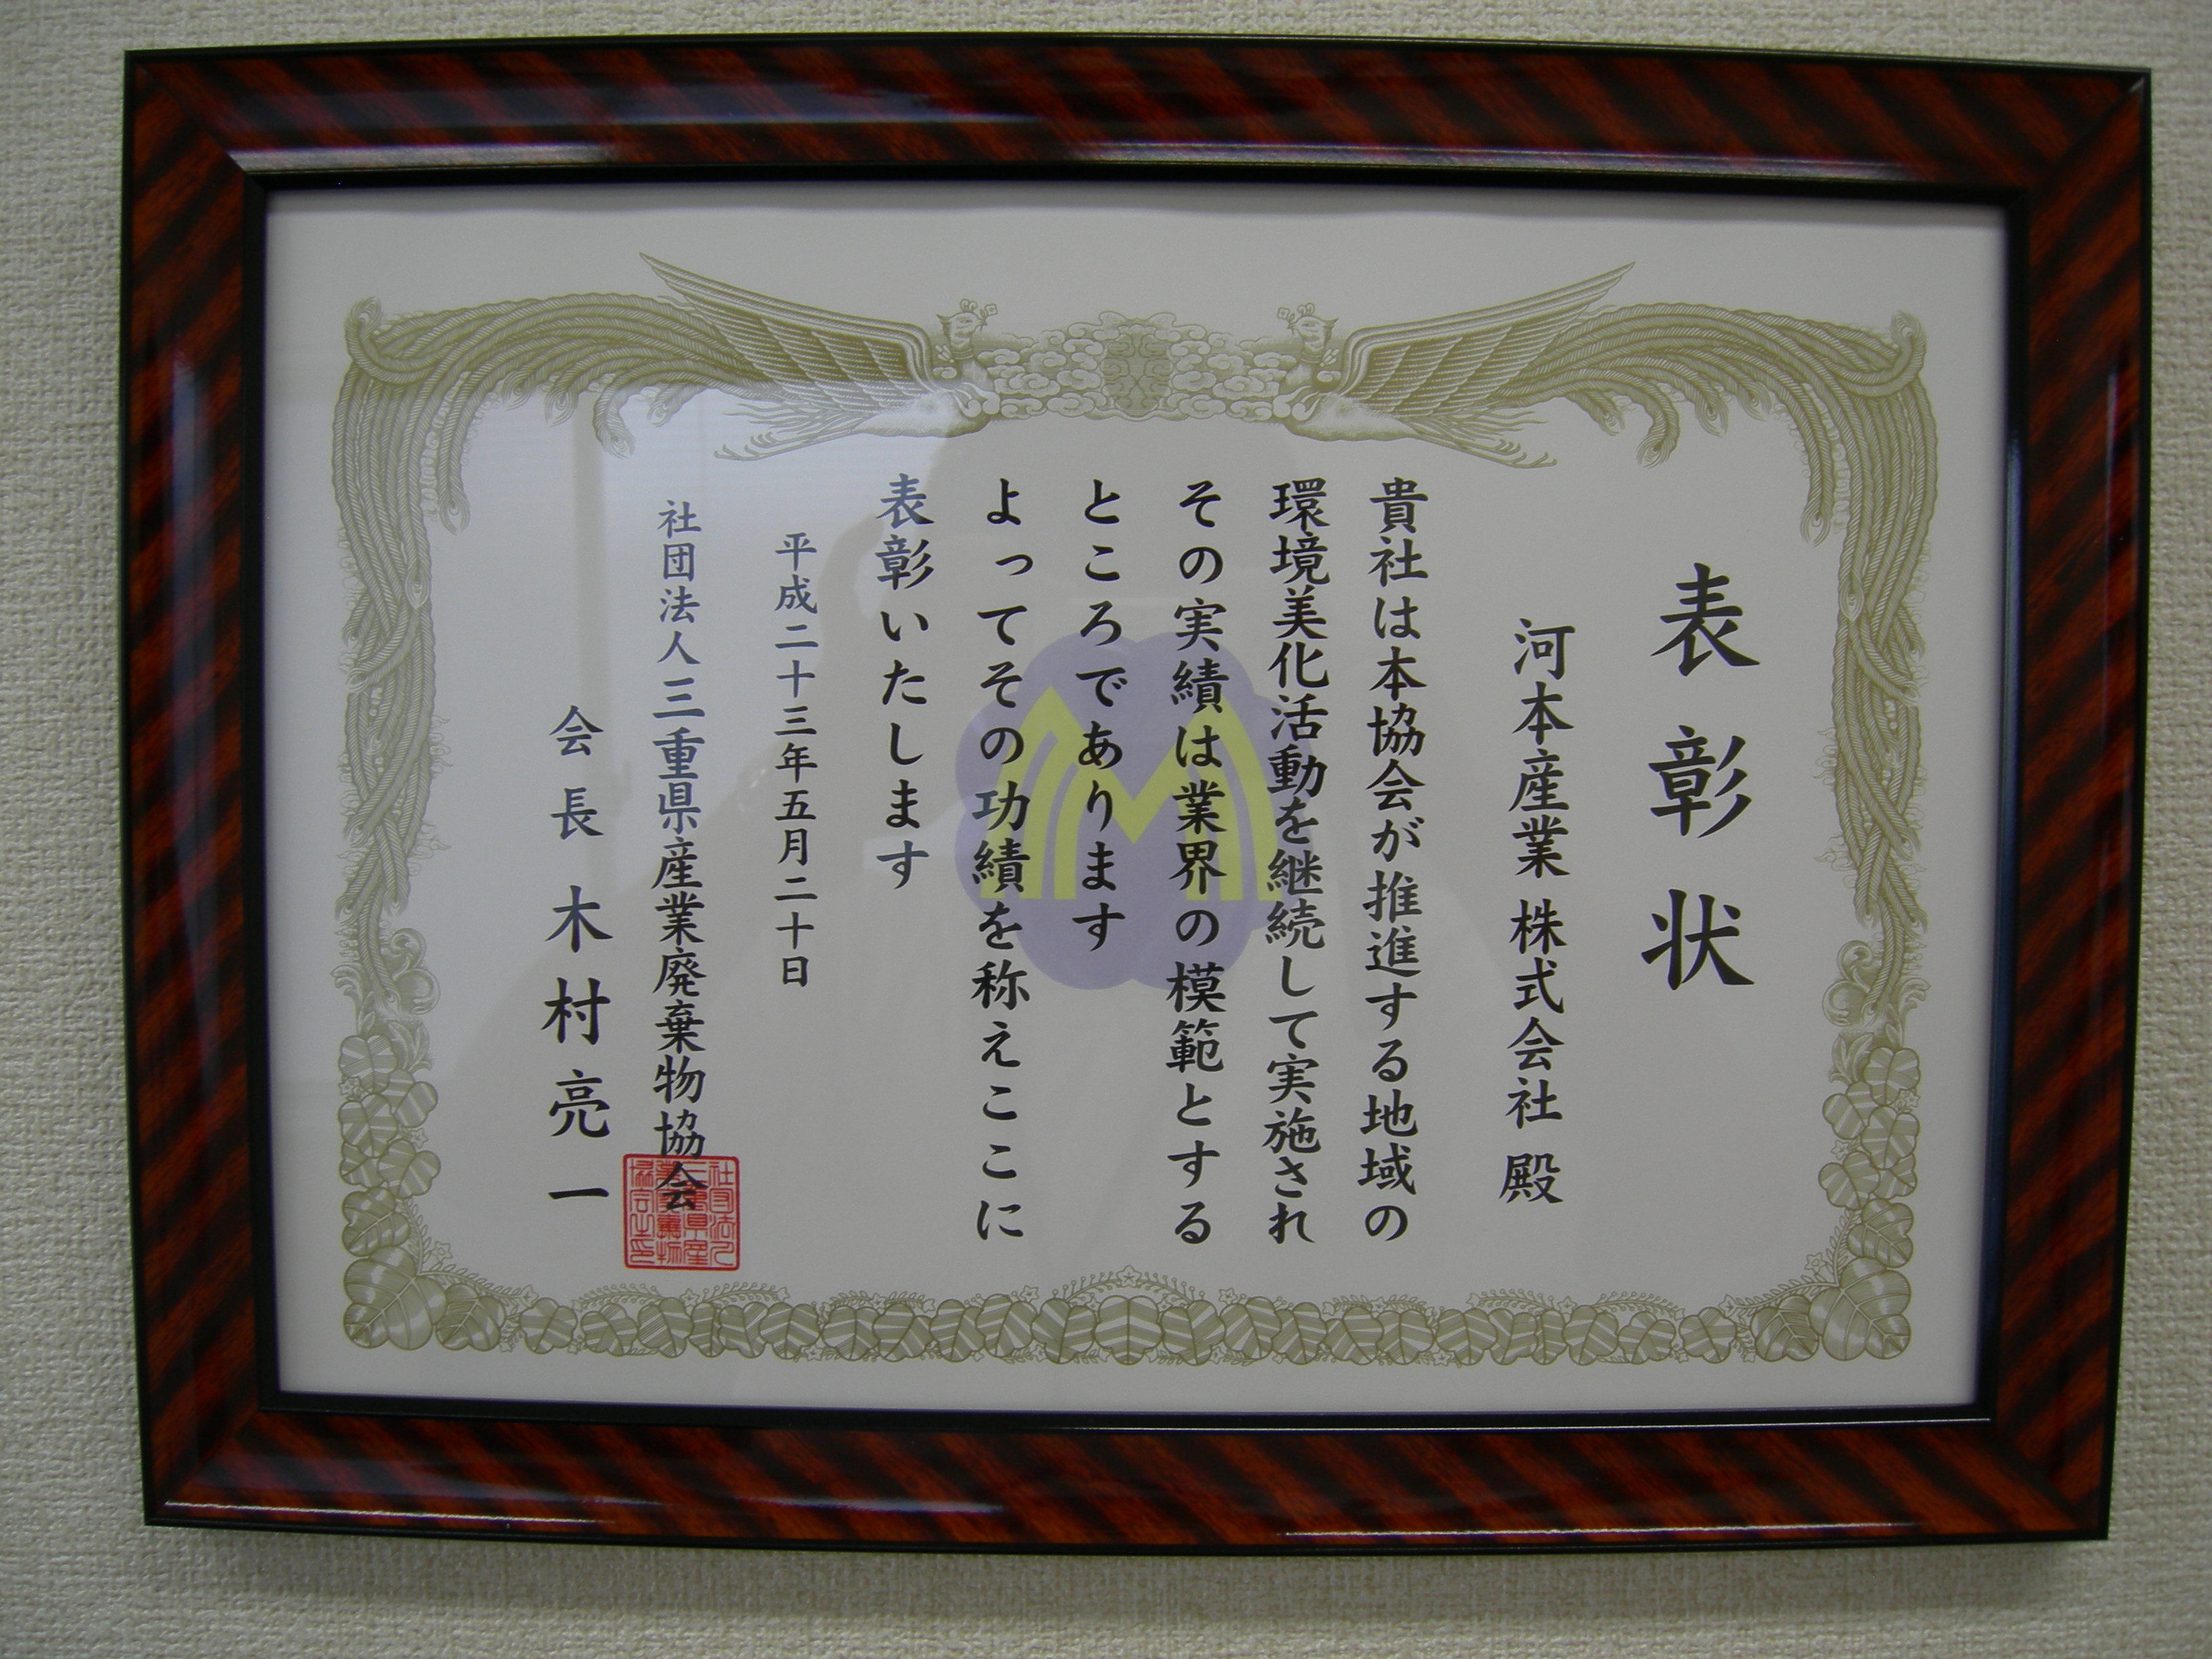 表彰状
河本産業 株式会社 殿
貴社は本協会が推進する地域の
環境美化活動を継続して実施され
その実績は業界の模範とする
ところであります
よってその功績を称えここに
表彰いたします
平成二十三年五月二十日
社団法人三重県産業廃棄物協会
会長 木村亮一
社団法人
三重県産
業廃棄物
協会之印